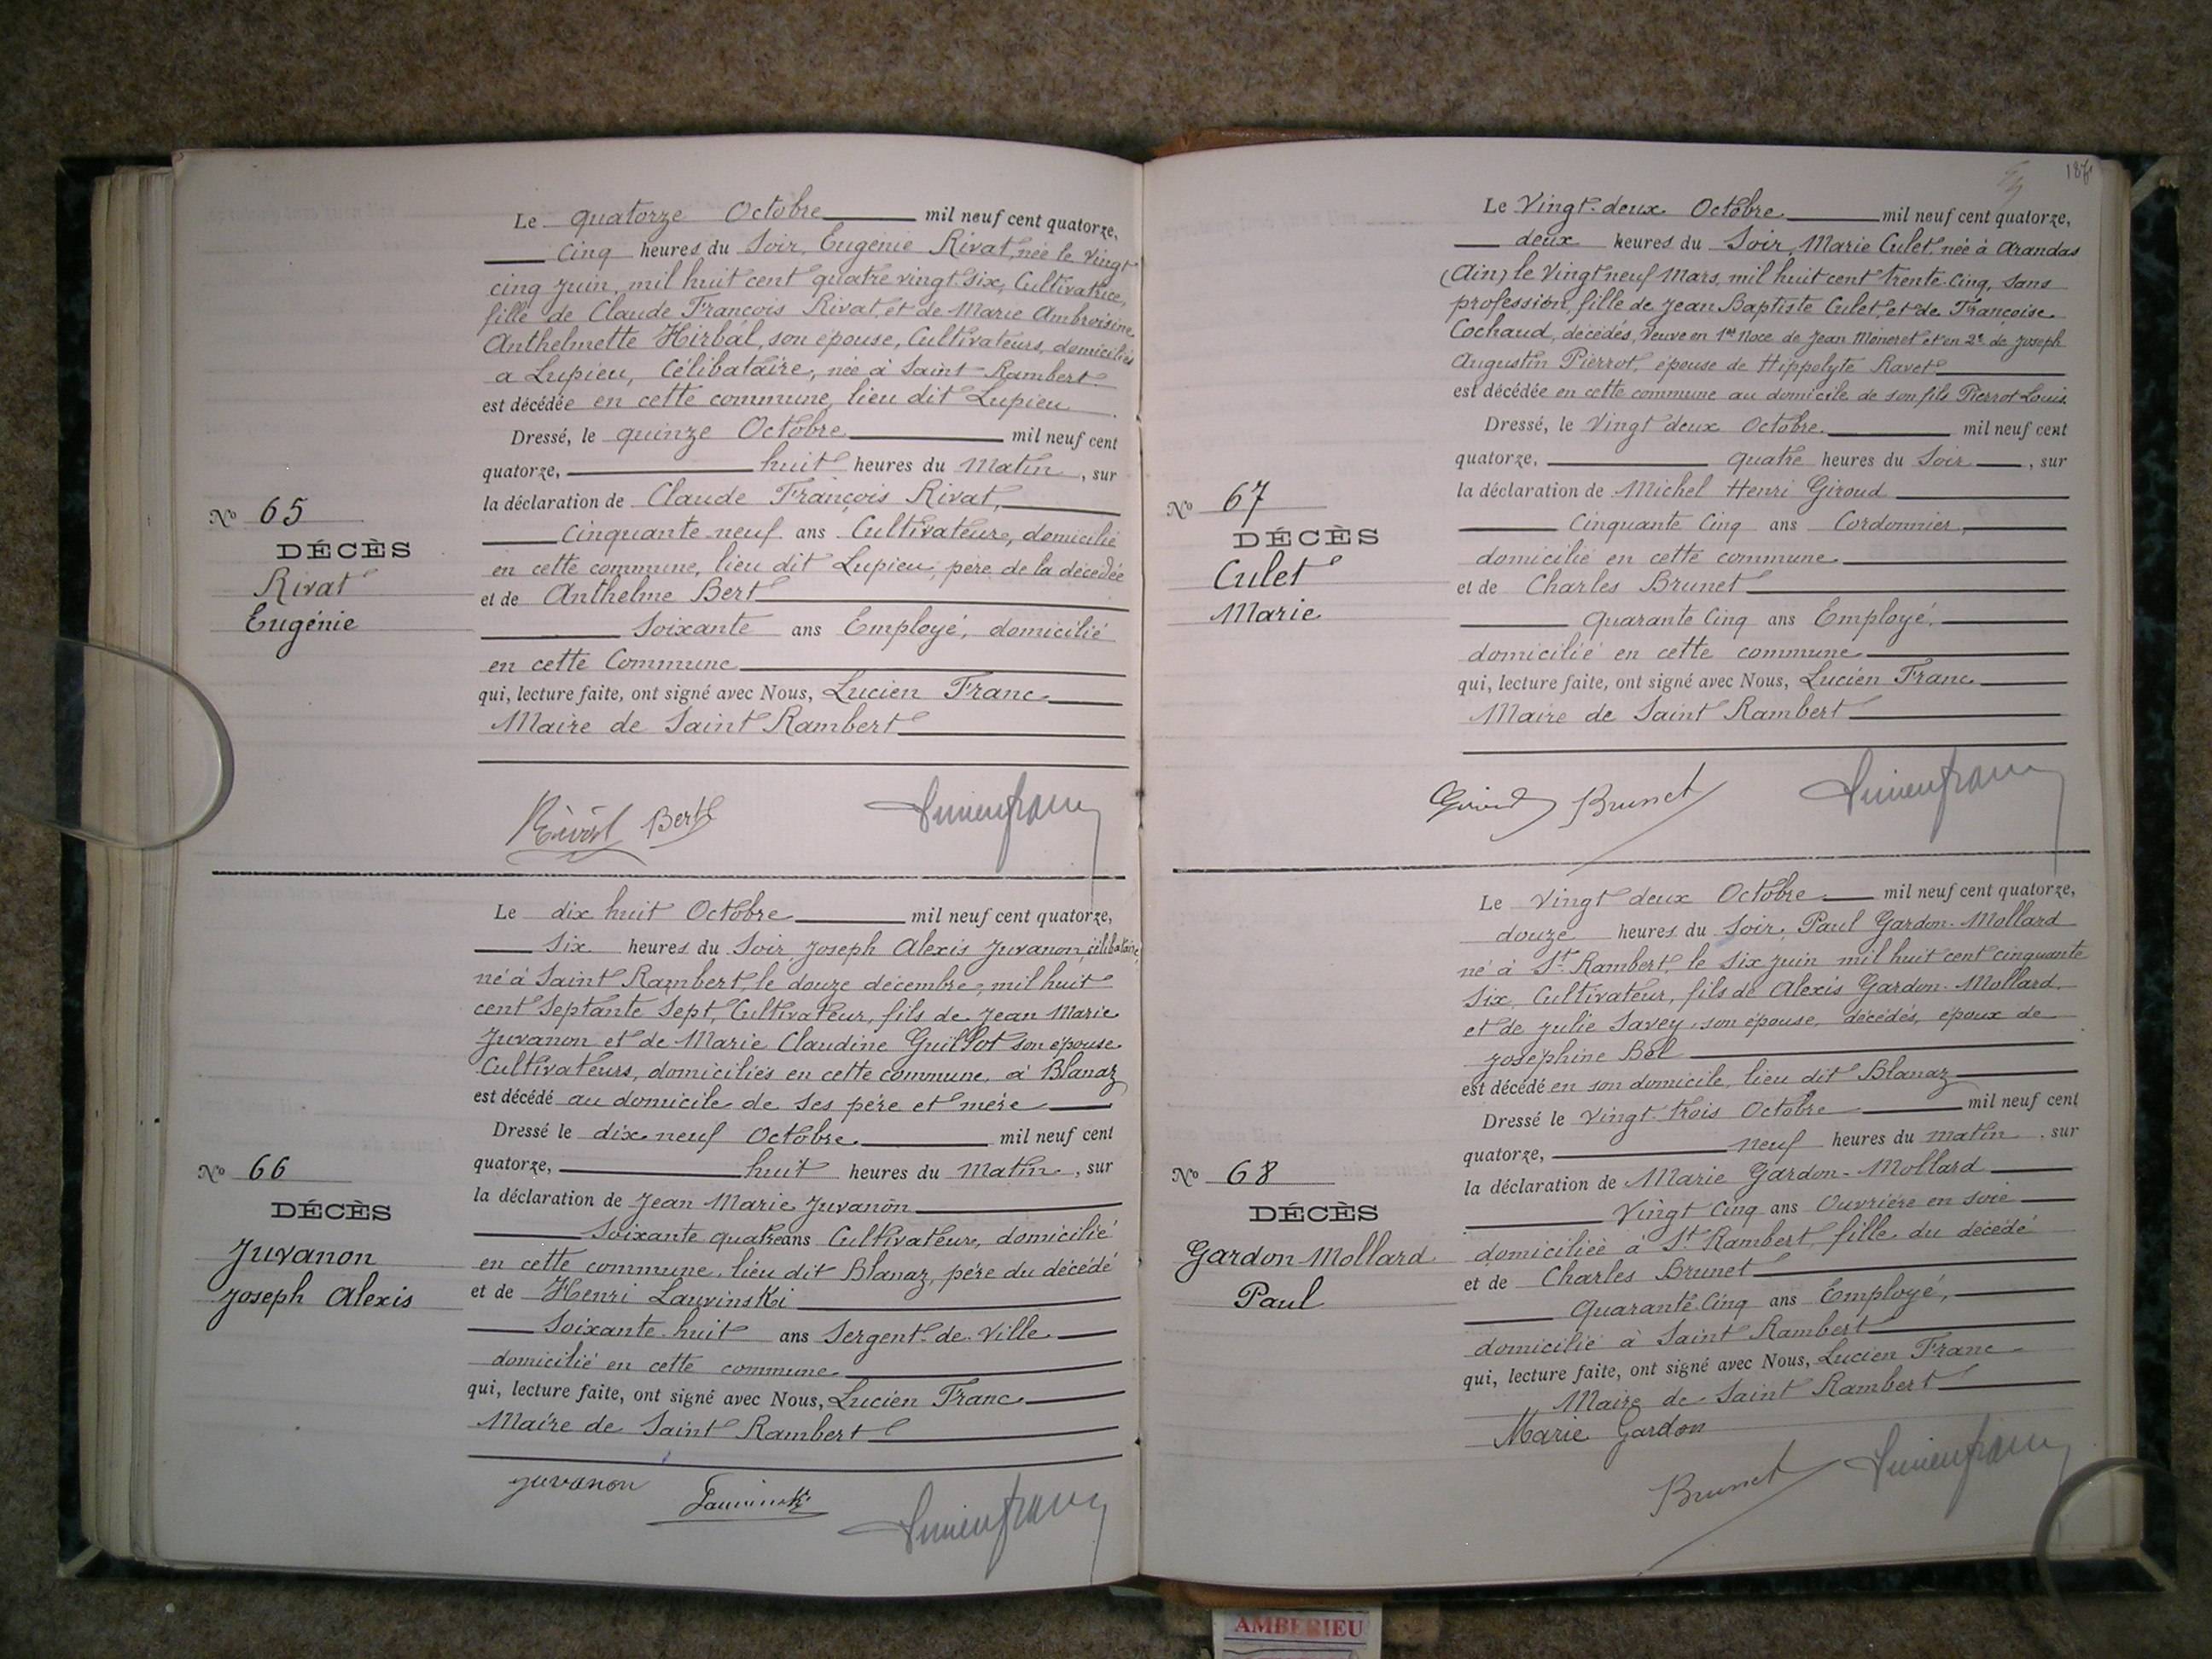 Le quatorze Octobre mil neuf cent quatorze,
Cinq heures du Soir, Eugénie Rivat, née le Vingt
cinq juin, mil huit cent quatre vingt six, Cultivatrice,
fille de Claude François Rivat, et de Marie Ambroisine
Anthelmette Hirbal, son épouse, Cultivateurs, domiciliés
a Lupieu, Célibataire, née à Saint-Rambert
est décédée en cette commune, lieu dit Lupieu
Dressé, le quinze Octobre mil neuf cent
quatorze, huit heures du Matin, sur
la déclaration de Claude François Rivat,
Nº 65
cinquante neuf ans Cultivateur, domicilié
DÉCÈS
en cette commune, lieu dit Lupieu, père de la décédée
Rivat
et de Anthelme Bert
Eugénie
Soixante ans Employé, domicilié
en cette Commune
qui, lecture faite, ont signé avec Nous, Lucien Franc
Maire de Saint Rambert
Rivat Bert Lucien franc
Le dix huit Octobre mil neuf cent quatorze,
Six heures du Soir, Joseph Alexis Juvanon, célibataire,
né à Saint Rambert, le douze décembre, mil huit
cent Septante Sept, Cultivateur, fils de Jean Marie
Juvanon et de Marie Claudine Guillot son épouse
Cultivateurs, domiciliés en cette commune, à Blanaz
est décédé au domicile de ses père et mère
Dressé le dix neuf Octobre mil neuf cent
Nº 66
quatorze, huit heures du Matin, sur
DÉCÈS
la déclaration de Jean Marie Juvanon
Soixante quatre ans Cultivateur, domicilié
Juvanon
en cette commune, lieu dit Blanaz, père du décédé
Joseph Alexis
et de Henri Lauvinski
Soixante huit ans Sergent de Ville
domicilié en cette commune
qui, lecture faite, ont signé avec Nous, Lucien Franc
Maire de Saint Rambert
juvanon Lauvinski Lucien franc
187
Le Vingt-deux Octobre mil neuf cent quatorze,
deux heures du Soir, Marie Culet, née à Arandas
(Ain) le Vingt neuf Mars, mil huit cent trente cinq, sans
profession, fille de Jean Baptiste Culet, et de Françoise
Cochaud, décédés, Veuve en 1er Noce de Jean Moneret et en 2e de Joseph
Augustin Pierrot, épouse de Hippolyte Ravet
est décédée en cette commune au domicile de son fils Pierrot Louis
Dressé, le Vingt deux Octobre mil neuf cent
quatorze, quatre heures du Soir, sur
la déclaration de Michel Henri Giroud
Nº 67
Cinquante Cinq ans Cordonnier,
DÉCÈS
domicilié en cette commune
Culet
et de Charles Brunet
Marie
Quarante Cinq ans Employé,
domicilié en cette commune
qui, lecture faite, ont signé avec Nous, Lucien Franc
Maire de Saint Rambert
Giroud Brunet Lucien franc
Le Vingt deux Octobre mil neuf cent quatorze,
douze heures du Soir, Paul Gardon-Mollard
né à St Rambert, le six juin mil huit cent cinquante
six, Cultivateur, fils de Alexis Gardon-Mollard,
et de Julie Savey, son épouse, décédés, époux de
Joséphine Bol
est décédé en son domicile, lieu dit Blanaz
Dressé le Vingt-trois Octobre mil neuf cent
quatorze, neuf heures du matin, sur
Nº 68
la déclaration de Marie Gardon-Mollard
DÉCÈS
Vingt Cinq ans Ouvrière en soie
Gardon-Mollard
domiciliée à St Rambert, fille du décédé
Paul
et de Charles Brunet
Quarante Cinq ans Employé,
domicilié à Saint Rambert
qui, lecture faite, ont signé avec Nous, Lucien Franc
Maire de Saint Rambert
Marie Gardon
Brunet Lucien franc
AMBERIEU